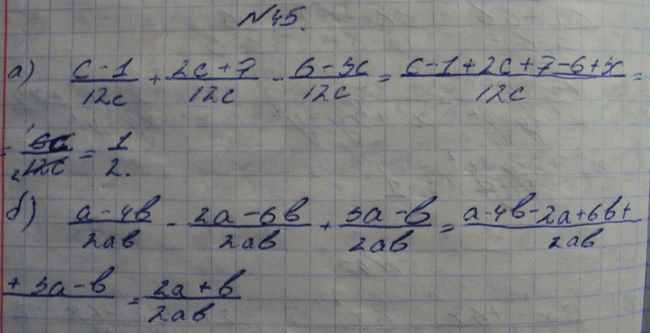 №45.
а) (c-1)/(12c) + (2c+7)/(12c) - (6-3c)/(12c) = (c-1+2c+7-6+3c)/(12c) =
= (6c)/(12c) = 1/2.
б) (a-4b)/(2ab) - (2a-6b)/(2ab) + (3a-b)/(2ab) = (a-4b-2a+6b+
+3a-b)/(2ab) = (2a+b)/(2ab)